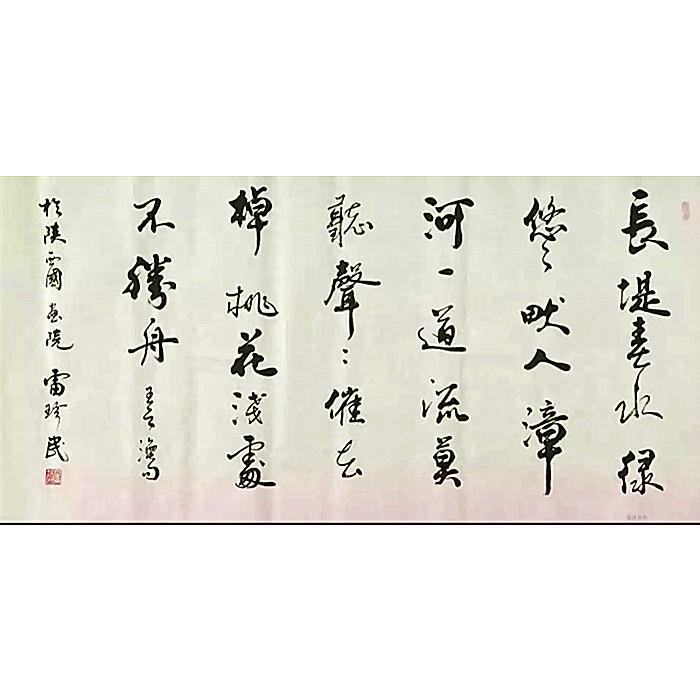 長堤春水緑
悠〻畎入漳
河一道流莫
聽聲〻催去
棹桃花淺處
不勝舟 王之渙
於陕西國画院 雷珍民